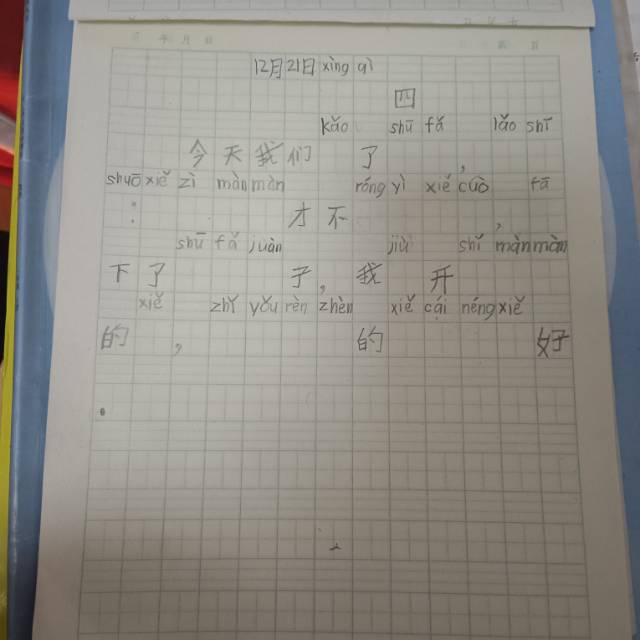 12月21日 xìng qì
四
kǎo shū fǎ lǎo shī
今天我们 了 ，
shuō xiě zì màn màn róng yì xiě cuò fā
： 才不 ，
shū fǎ juàn jiù shǐ màn màn
下了 子，我 开
xiě zhǐ yǒu rèn zhēn xiě cái néng xiě
的 ， 的 好
。